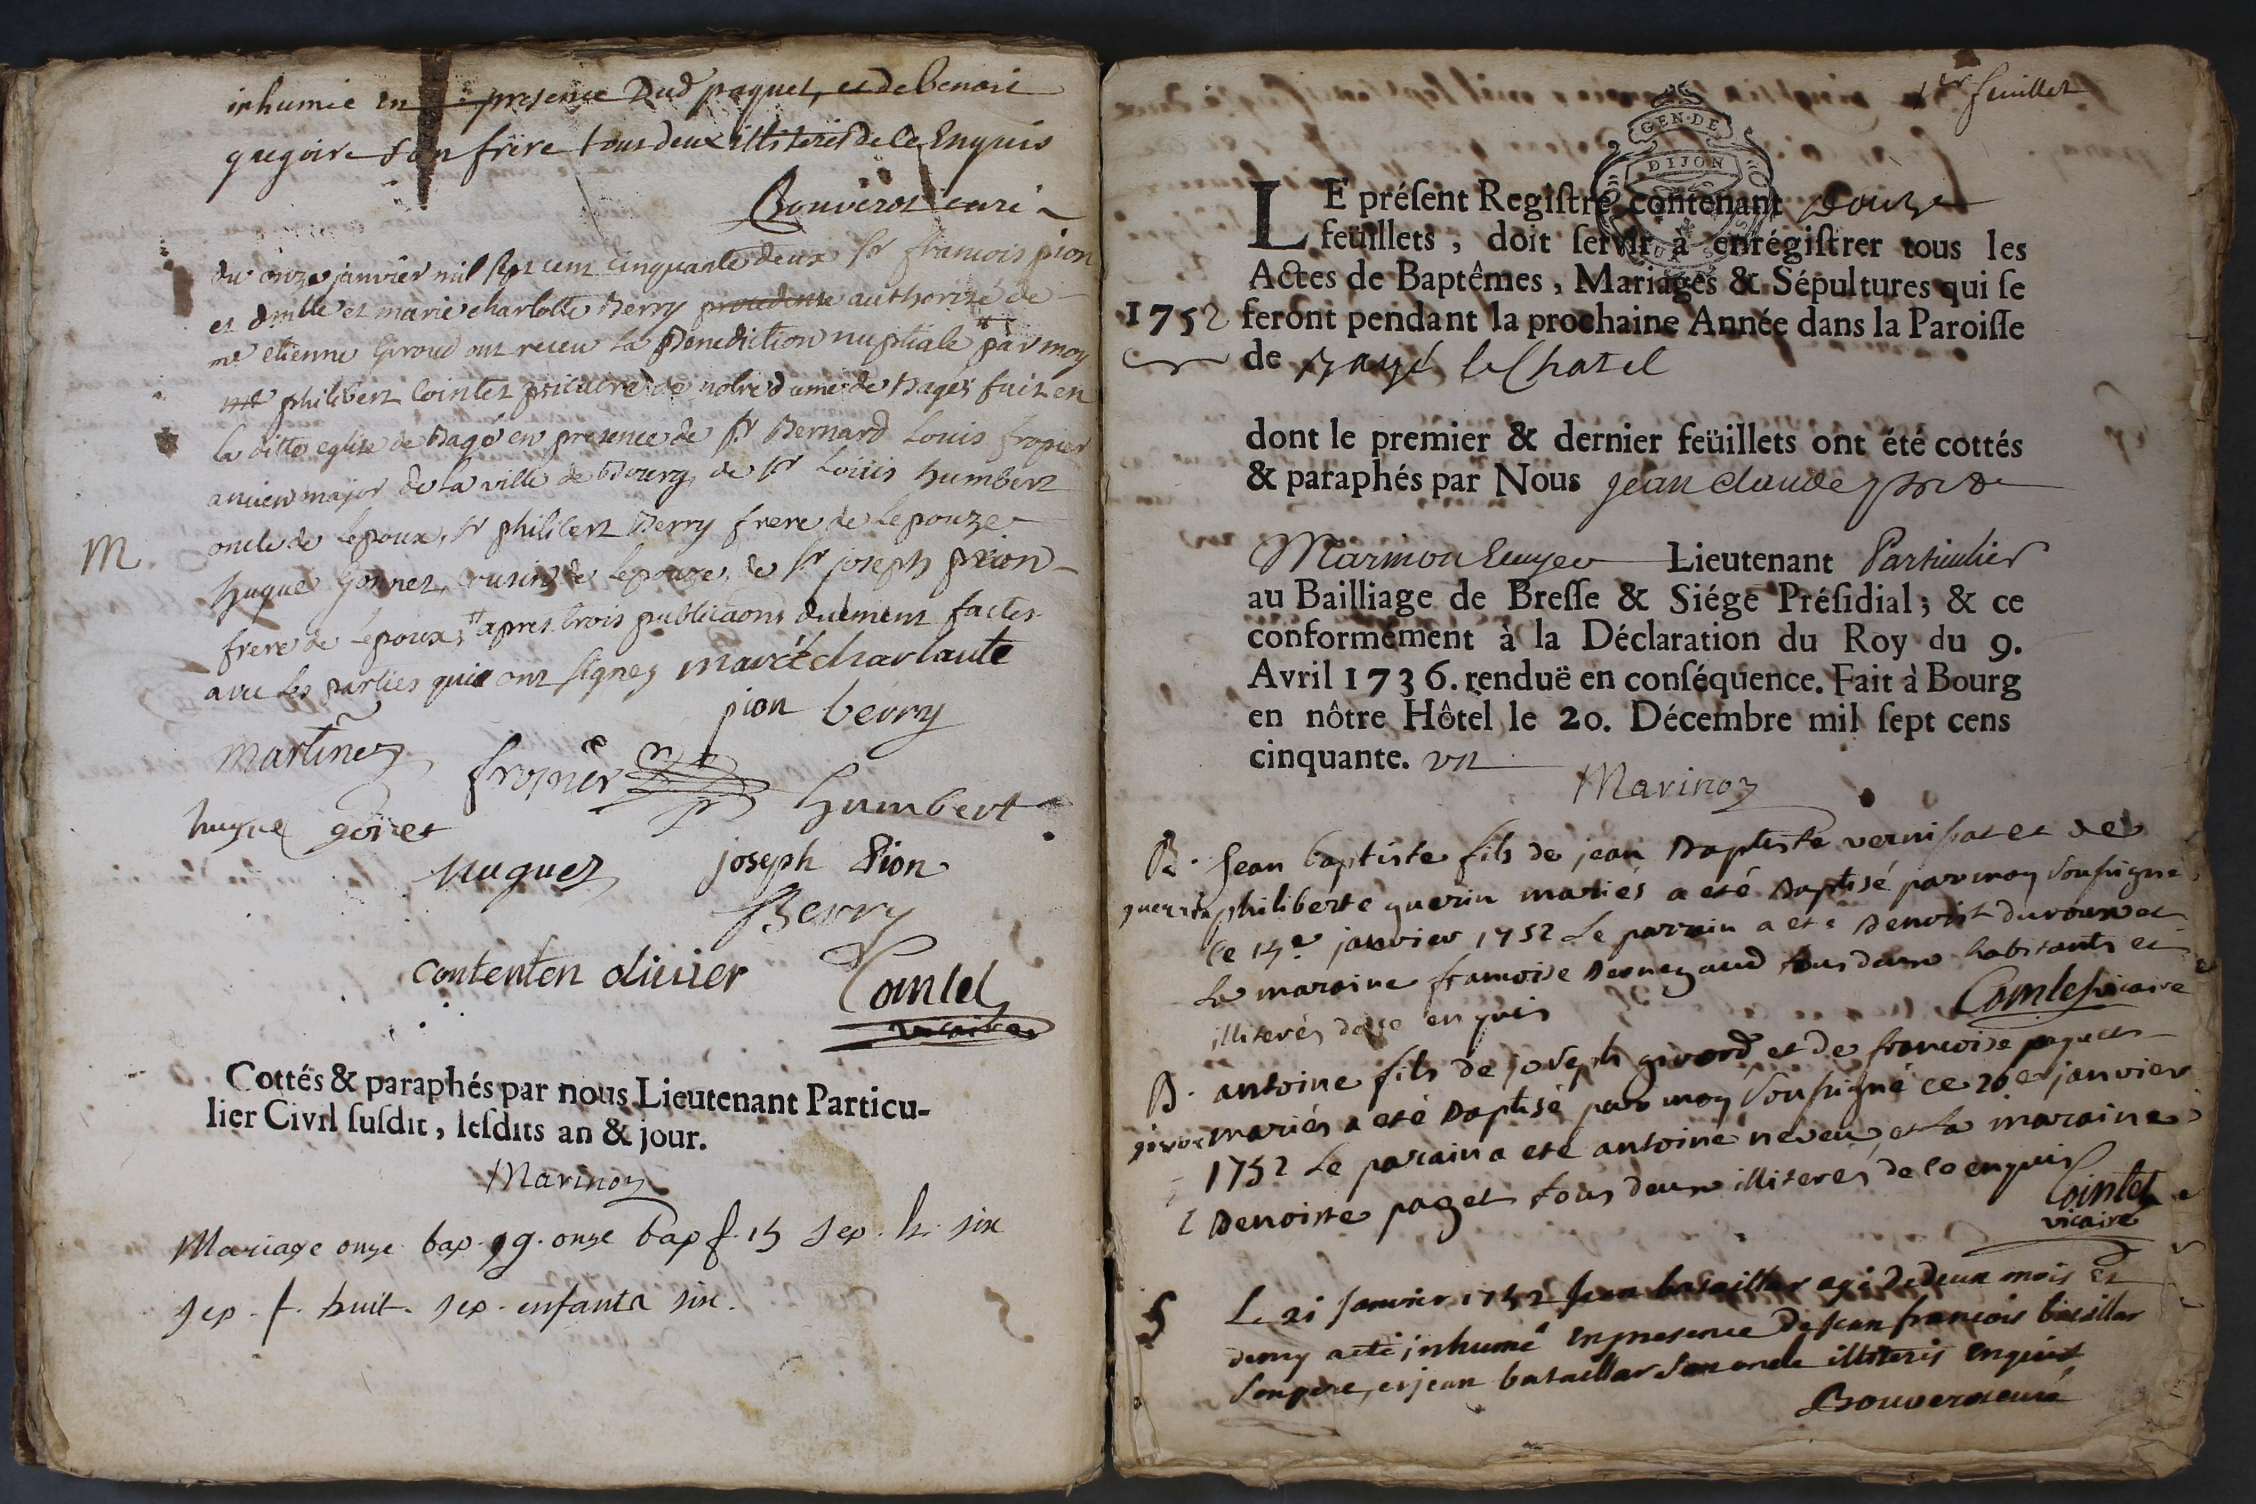 inhumée en presence Dud paquet, et de benoit
gregoire son frere tous deux illiterés de ce Enquis
Bouverot curé
du onze janvier mil sept cent cinquante deux Sr francois pion
et dmlle et marie charlotte Berry procedente authorizé de
me etienne Giroud ont receu la Benediction nuptiale # par moy
me philibert Cointet vicaire de notre dame de Bagé; fait en
la ditte eglise de Bagé en presence de Sr Bernard Louis fropier
ancien major de la ville de Bourg, de Sr Louis humbert
M.
oncle de lepoux, Sr philibert Berry frere de lepouze
hugue gonnet, cousin de lepouze, de Sr joseph pion
frere de lepoux, # apres trois publicaons duement factes
avec les parties qui ont signez marie charlaute
pion berry
Martinez
fropier
humbert
hugue goñet
huguet
joseph Pion
Berry
Contenten oliuier
Cointet
vicaire
Cottés & paraphés par nous Lieutenant Particu-
lier Civil ſuſdit, leſdits an & jour.
Marinon
Mariage onze bap. g. onze bap f. 15 sep. h. six
sep. f. huit. sep. enfants six.
1er feuillet
GEN·DE
DIJON
LE préſent Regiſtre contenant Douze
feüillets, doit ſervir à enrégiſtrer tous les
Actes de Baptêmes, Mariages & Sépultures qui ſe
1752 feront pendant la prochaine Année dans la Paroiſſe
de Bagé le Chatel
dont le premier & dernier feüillets ont été cottés
& paraphés par Nous jean claude
Marinon Ecuyer Lieutenant Particulier
au Bailliage de Breſſe & Siége Préſidial; & ce
conformément à la Déclaration du Roy du 9.
Avril 1736. renduë en conſéquence. Fait à Bourg
en nôtre Hôtel le 20. Décembre mil ſept cens
cinquante. un
Marinon
B. Jean baptiste fils de jean Baptiste vernissat et de
philiberte guerin mariés a eté Baptisé par moy soussigné
ce 15e janvier 1752 Le parrain a eté Benoist duroux et
La maraine francoise tous deux habitants et
illiterés de ce enquis Cointet vicaire
B. antoine fils de joseph girard et de francoise paquet
mariés a eté Baptisé par moy soussigné ce 20e janvier
1752 Le parain a eté antoine neveu, et La maraine
Benoiste paget tous deux illiteres de ce enquis
Cointet
vicaire
S
Le 21 janvier 1752 jean bataillar agé de deux mois Et
demy a eté inhumé En presence De jean francois bataillar
son pere, et jean bataillar son oncle illiteris Enquis
Bouverot curé